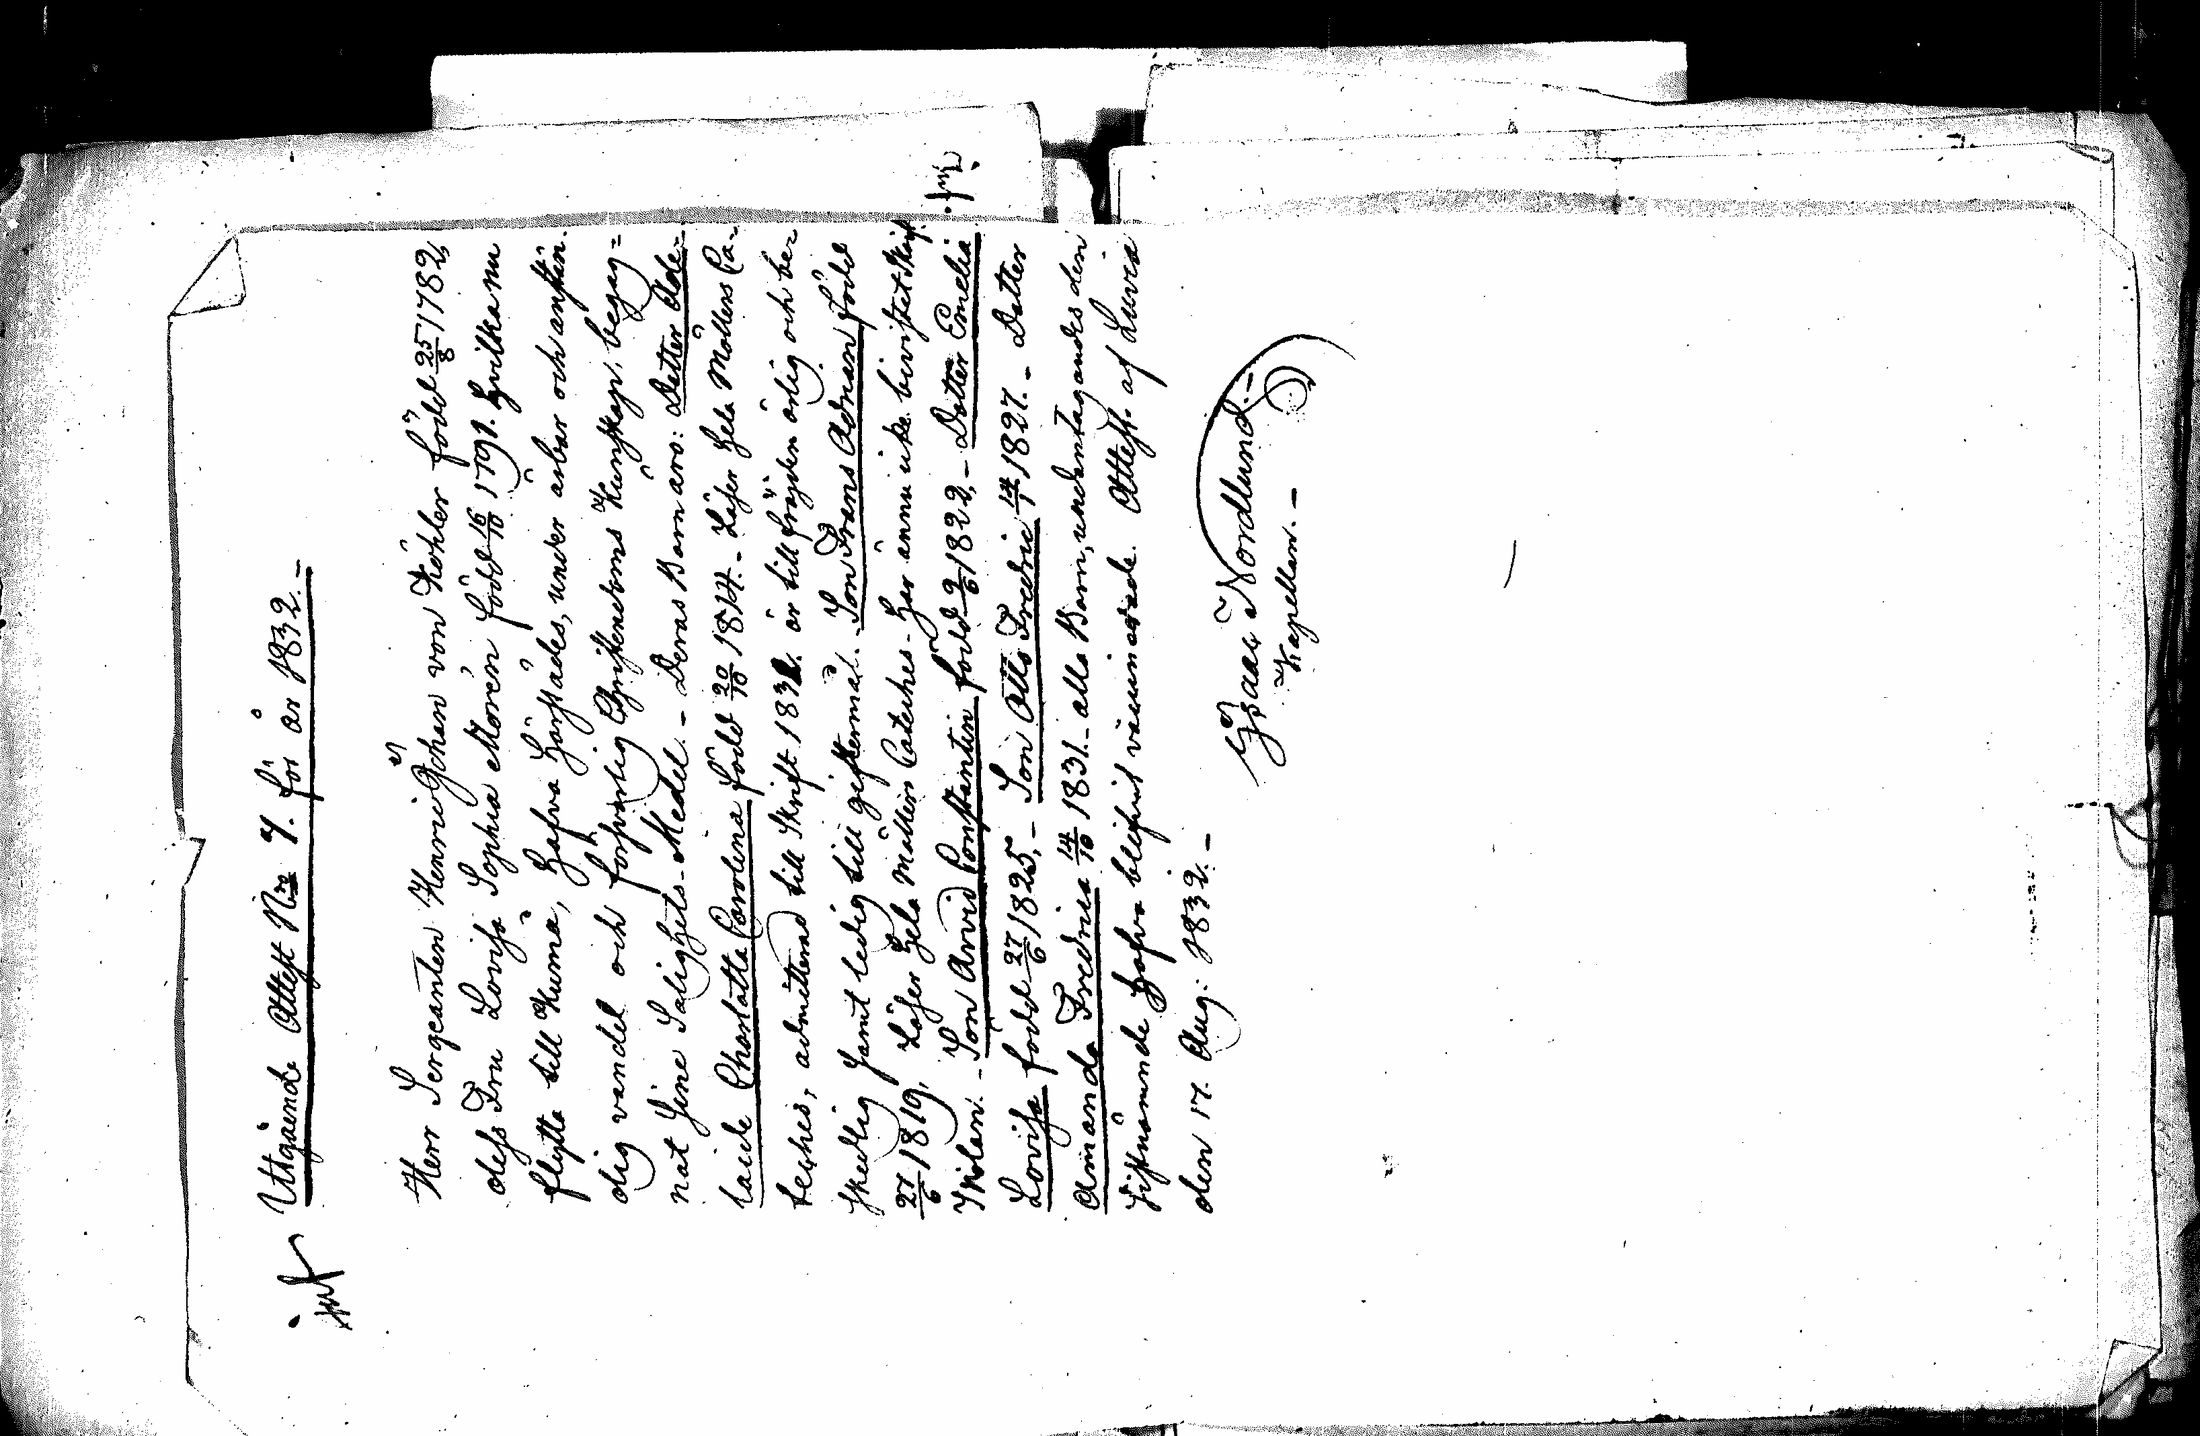 Utgående Attest Nro 7. för år 1832.-
Herr Sergeanten Henric Johan von Köhler född 25/8 1782,
dess Fru Lovisa Sophia Morén född 16/10 1791. hvilka nu
flytta till Kumå, hafva härstädes, under ärbar och anstän-
dig vandel och förswarlig Christendoms Kunskap, begag=
nat sine Salighets-Medel. - Deras Barn äro: Dotter Ade=
laide Charlotta Carolina född 20/10 1814. - Läser hela Möllers Ca-
teches, admitterad till Skrift 1832. är till frägden ärlig och be-
skedlig samt ledig till giftermål. - Son Frans Adrian född
27/6 1819, Läser hela Möllers Cateches - har ännu icke bivistat Skrift
Skolan. - Son Arvid Constantin född 9/6 1822. - Dotter Emelia
Lovisa född 27/6 1825. - Son Otto Fredric 14/1 1827. - Dotter
Amanda Fredrica 14/10 1831. - alla Barn, undantagandes den
sistnämnde hafva blifvit vaccinerade. Attest. af Luvia
den 17. Aug: 1832. -
Isaac Nordlund. -
Kapellan. -